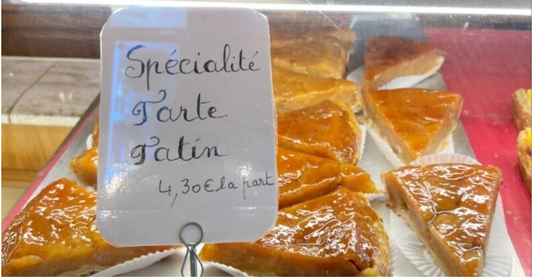 Spécialité
Tarte
Tatin
4,30€ la part